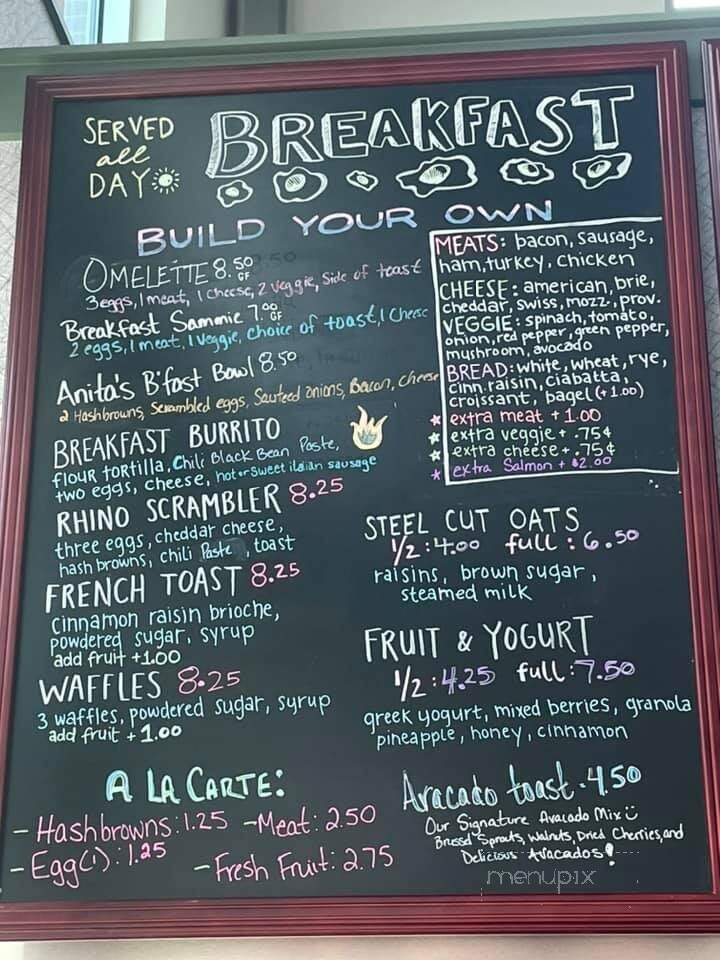 SERVED
all
DAY
BREAKFAST
BUILD YOUR OWN
OMELETTE 8.50 GF
3 eggs, 1 meat, 1 cheese, 2 veggie, Side of toast
Breakfast Sammie 7.00 GF
2 eggs, 1 meat, 1 Veggie, Choice of toast, 1 Cheese
Anita's B'fast Bowl 8.50
2 Hashbrowns, Scrambled eggs, Sauteed onions, Bacon, Cheese
BREAKFAST BURRITO
flour tortilla, Chili Black Bean Paste,
two eggs, cheese, hot or sweet italian sausage
RHINO SCRAMBLER 8.25
three eggs, cheddar cheese,
hash browns, chili Paste, toast
FRENCH TOAST 8.25
Cinnamon raisin brioche,
powdered sugar, syrup
add fruit +1.00
WAFFLES 8.25
3 waffles, powdered sugar, syrup
add fruit +1.00
MEATS: bacon, sausage,
ham, turkey, chicken
CHEESE: american, brie,
cheddar, swiss, mozz, prov.
VEGGIE: spinach, tomato,
onion, red pepper, green pepper,
mushroom, avocado
BREAD: white, wheat, rye,
cinn. raisin, ciabatta,
croissant, bagel (+1.00)
extra meat + 1.00
extra veggie + .75¢
extra cheese + .75¢
extra Salmon + $2.00
STEEL CUT OATS
1/2 : 4.00 full : 6.50
raisins, brown sugar,
steamed milk
FRUIT & YOGURT
1/2 : 4.25 full : 7.50
greek yogurt, mixed berries, granola
pineapple, honey, cinnamon
A LA CARTE:
- Hashbrowns: 1.25 - Meat: 2.50
- Egg (1): 1.25 - Fresh Fruit: 2.75
Avacado toast · 4.50
Our Signature Avacado Mix
Sprouts, Walnuts, Dried Cherries, and
Delicious Avacados!
menupix